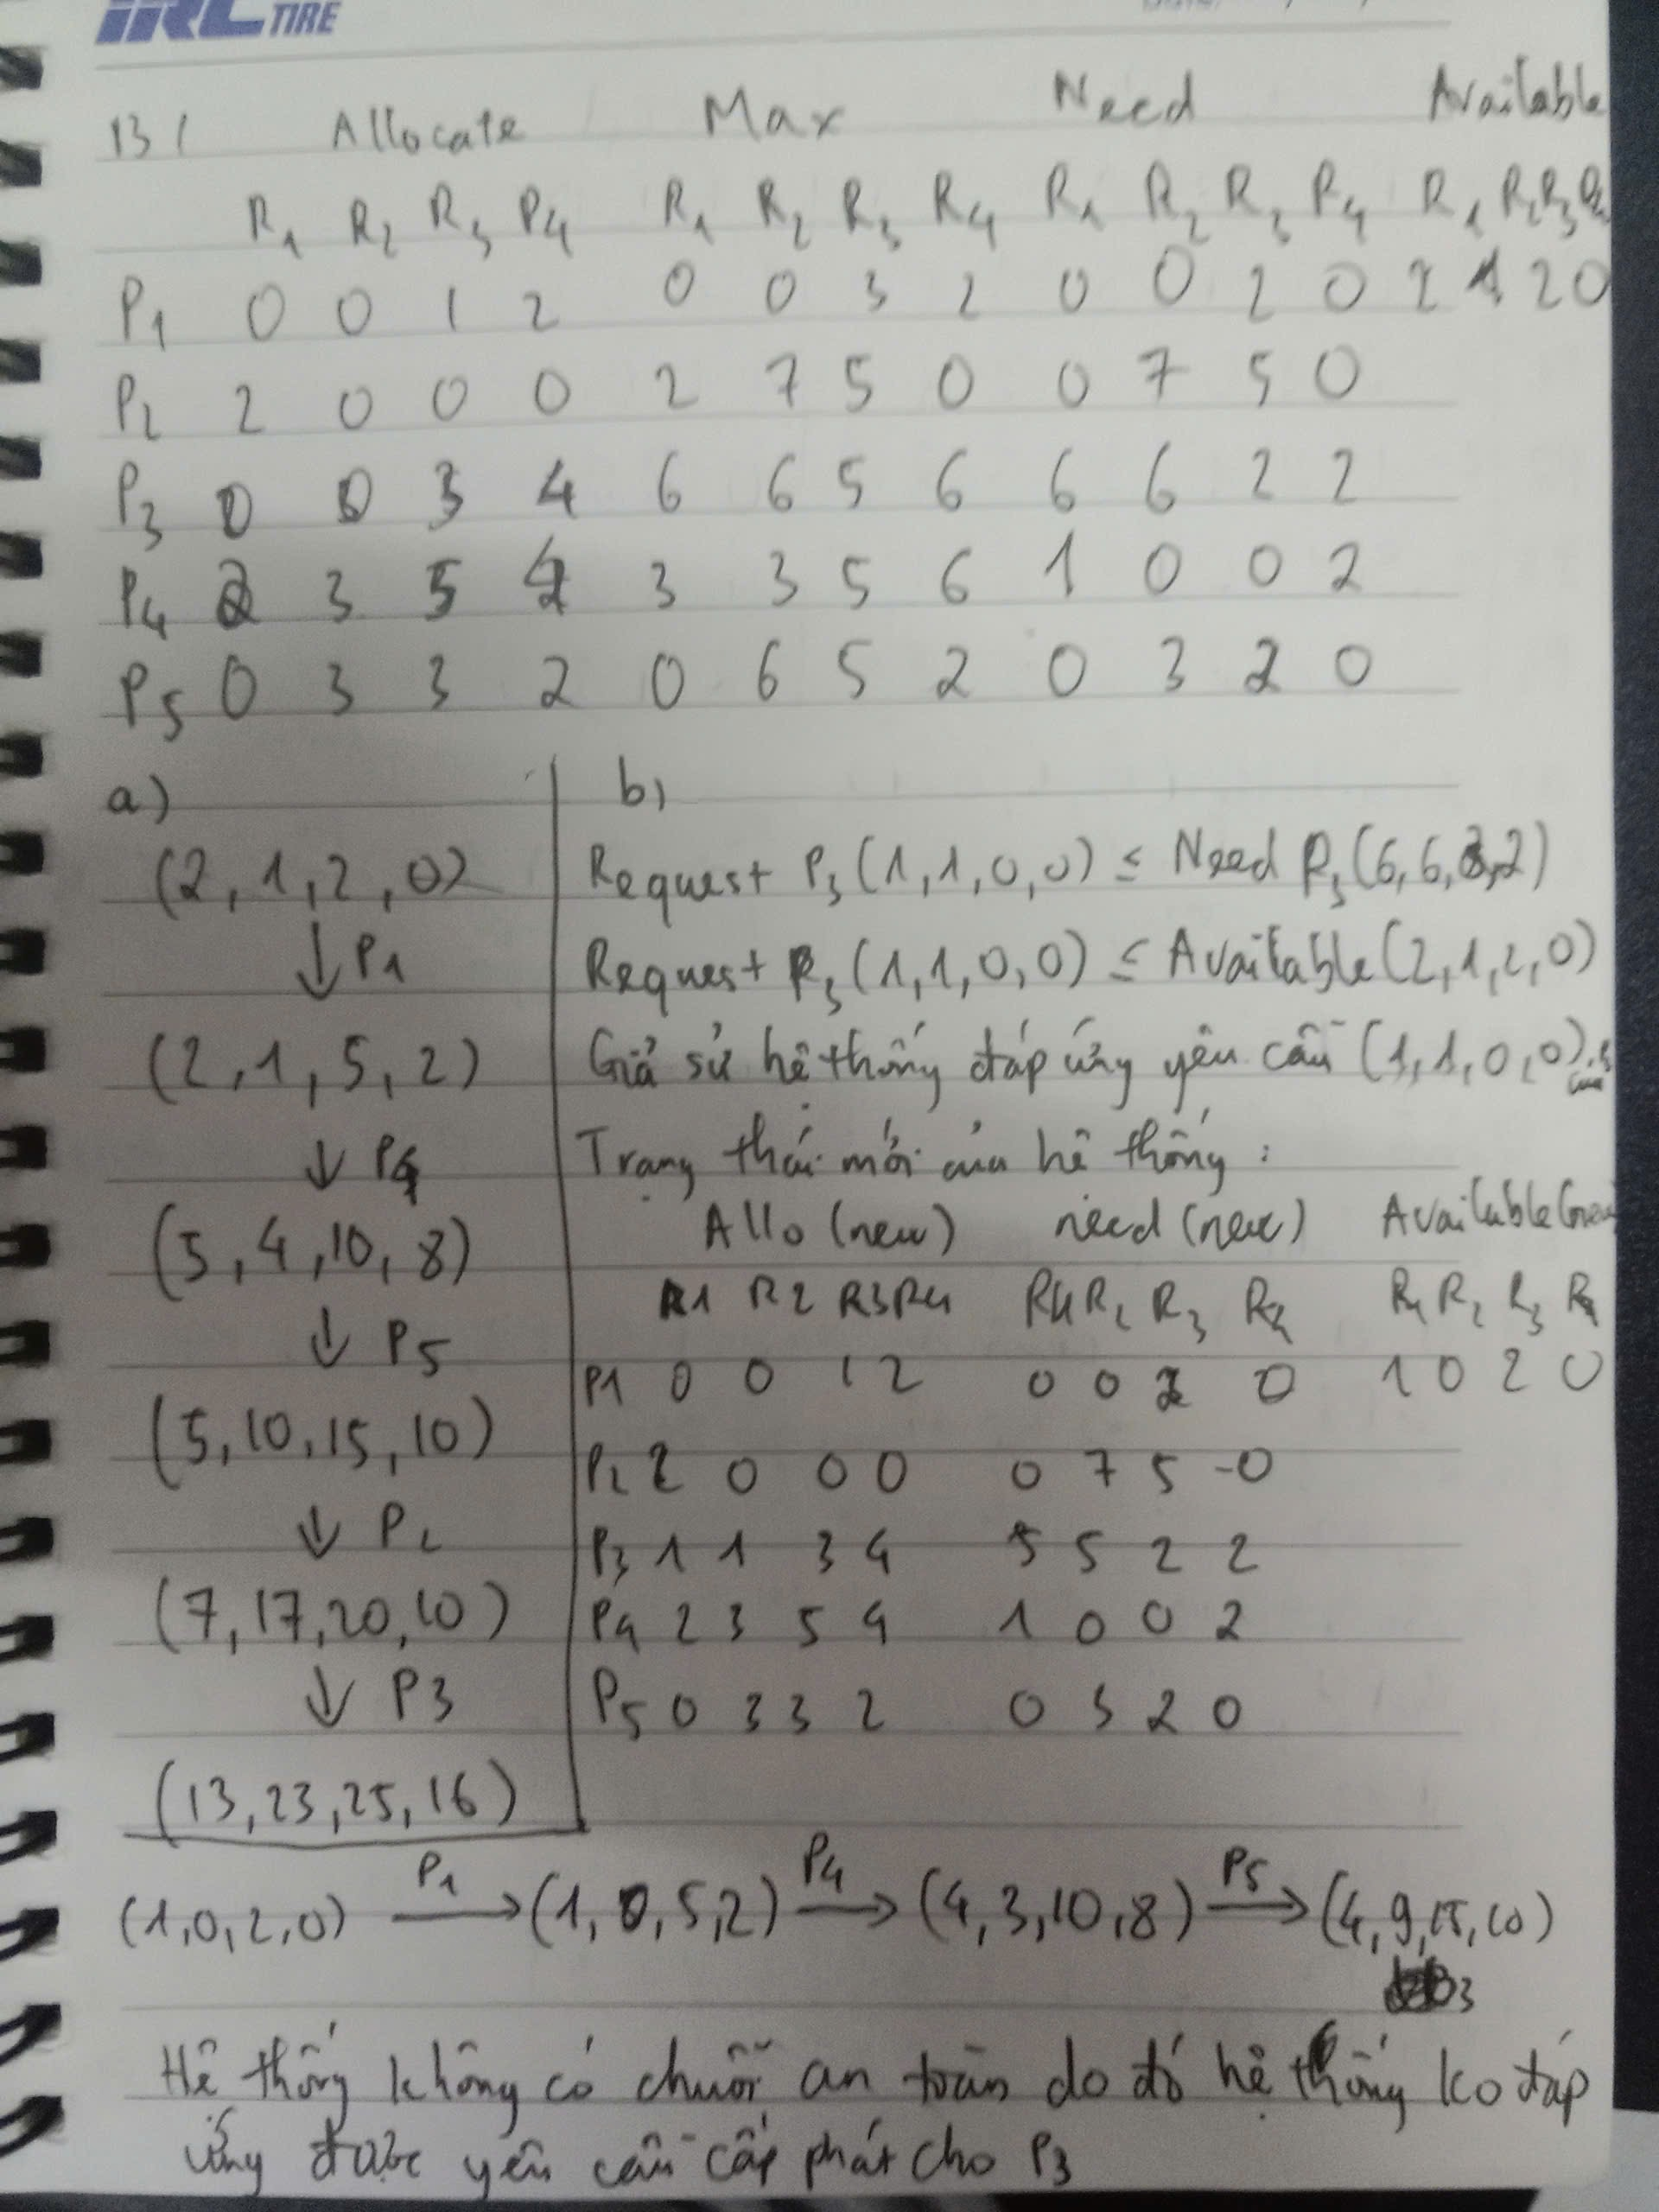 IRC TIRE
B1 Allocate Max Need Available
R1 R2 R3 R4 R1 R2 R3 R4 R1 R2 R3 R4 R1 R2 R3 R4
P1 0 0 1 2 0 0 3 2 0 0 2 0 2 1 2 0
P2 2 0 0 0 2 7 5 0 0 7 5 0
P3 0 0 3 4 6 6 5 6 6 6 2 2
P4 2 3 5 4 3 3 5 6 1 0 0 2
P5 0 3 3 2 0 6 5 2 0 3 2 0
a)
(2, 1, 2, 0)
↓ P1
(2, 1, 5, 2)
↓ P4
(5, 4, 10, 8)
↓ P5
(5, 10, 15, 10)
↓ P2
(7, 17, 20, 10)
↓ P3
(13, 23, 25, 16)
b)
Request P3 (1, 1, 0, 0) ≤ Need P3 (6, 6, 2, 2)
Request P3 (1, 1, 0, 0) ≤ Available (2, 1, 2, 0)
Giả sử hệ thống đáp ứng yêu cầu (1, 1, 0, 0)
Trạng thái mới của hệ thống :
Allo (new) need (new) Available (new
R1 R2 R3 R4 R1 R2 R3 R4 R1 R2 R3 R4
P1 0 0 1 2 0 0 2 0 1 0 2 0
P2 2 0 0 0 0 7 5 0
P3 1 1 3 4 5 5 2 2
P4 2 3 5 4 1 0 0 2
P5 0 3 3 2 0 3 2 0
(1, 0, 2, 0) P1 → (1, 0, 5, 2) P4 → (4, 3, 10, 8) P5 → (4, 9, 15, 10)
Hệ thống không có chuỗi an toàn do đó hệ thống ko đáp
ứng được yêu cầu cấp phát cho P3